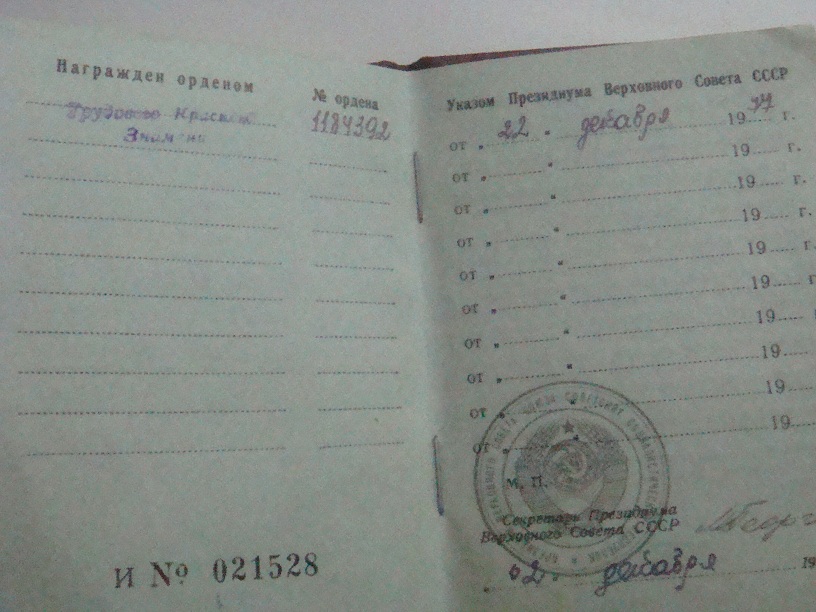 Награжден орденом
№ ордена
Трудового Красного
Знамени
1184392
И № 021528
Указом Президиума Верховного Совета СССР
от „ 22 “ декабря 1977 г.
от „ “ 19 г.
от „ “ 19 г.
от „ “ 19 г.
от „ “ 19 г.
от „ “ 19 г.
от „ “ 19
от „ “ 19
от „ “ 19
от „ “ 19
М. П.
Секретарь Президиума
Верховного Совета СССР
декабря 19